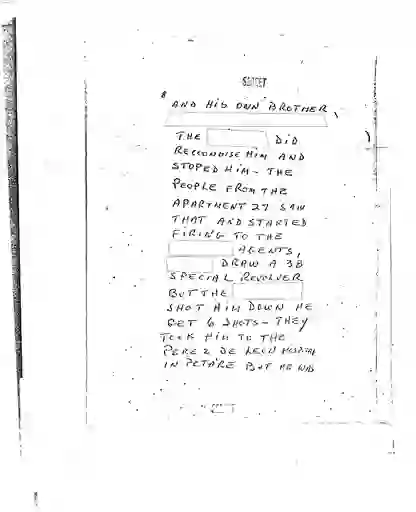 SECRET
AND HIS OWN BROTHER,
THE DID
RECCONOISE HIM AND
STOPED HIM - THE
PEOPLE FROM THE
APARTMENT 27 SAW
THAT AND STARTED
FIRING TO THE
AGENTS,
DRAW A 38
SPECIAL REVOLVER
BUT THE
SHOT HIM DOWN HE
GET 6 SHOTS - THEY
TOOK HIM TO THE
PEREZ DE LEON HOSPITAL
IN PETARE BUT HE WAS